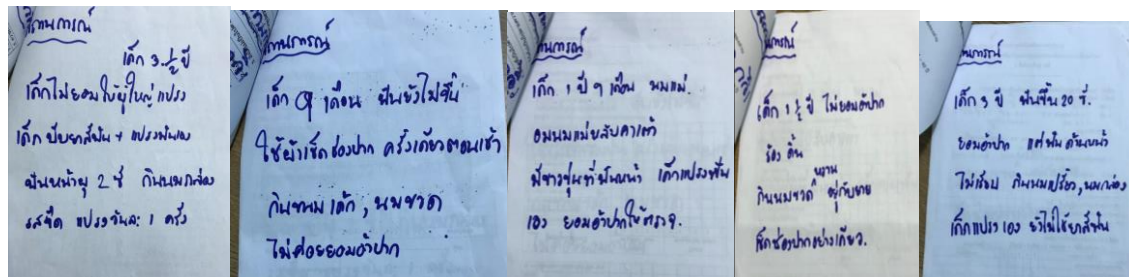 สถานการณ์
เด็ก 3 1/2 ปี
เด็กไม่ยอมให้ผู้ใหญ่แปรง
เด็กบีบยาสีฟัน + แปรงฟันเอง
ฟันหน้าผุ 2 ซี่ กินนมกล่อง
รสจืด แปรงวันละ 1 ครั้ง
สถานการณ์
เด็ก 9 เดือน ฟันยังไม่ขึ้น
ใช้ผ้าเช็ดช่องปาก ครั้งเดียวตอนเช้า
กินขนมเด็ก, นมขวด
ไม่ค่อยยอมอ้าปาก
สถานการณ์
เด็ก 1 ปี 9 เดือน นมแม่
อมนมแม่หลับคาเต้า
มีขาวขุ่นที่ฟันหน้า เด็กแปรงฟัน
เอง ยอมอ้าปากให้ตรวจ.
สถานการณ์
เด็ก 1 1/2 ปี ไม่ยอมอ้าปาก
ร้อง ดิ้น
กินนมขวด หวาน อยู่กับยาย
เช็ดช่องปากอย่างเดียว.
สถานการณ์
เด็ก 3 ปี ฟันขึ้น 20 ซี่.
ยอมอ้าปาก แต่ฟันด้านหน้า
ไม่เรียบ กินนมเปรี้ยว, นมกล่อง
เด็กแปรงเอง ยังไม่ใช้ยาสีฟัน